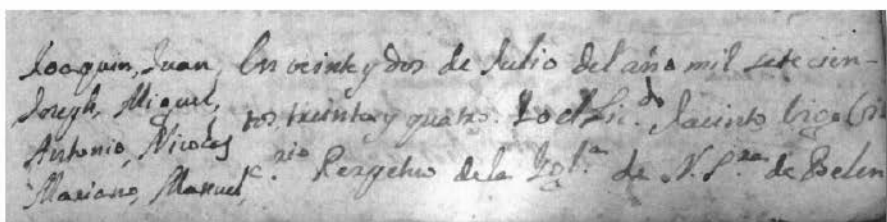 Joaquin, Juan,
Joseph, Miguel,
Antonio, Nicolas
Mariano, Manuel,
En veinte y dos de Julio del año mil setecien-
tos, treinta y quatro. Yo el Lic.do Jacinto
c.rio Perpetuo de la Igl.a de N. S.ra de Belen